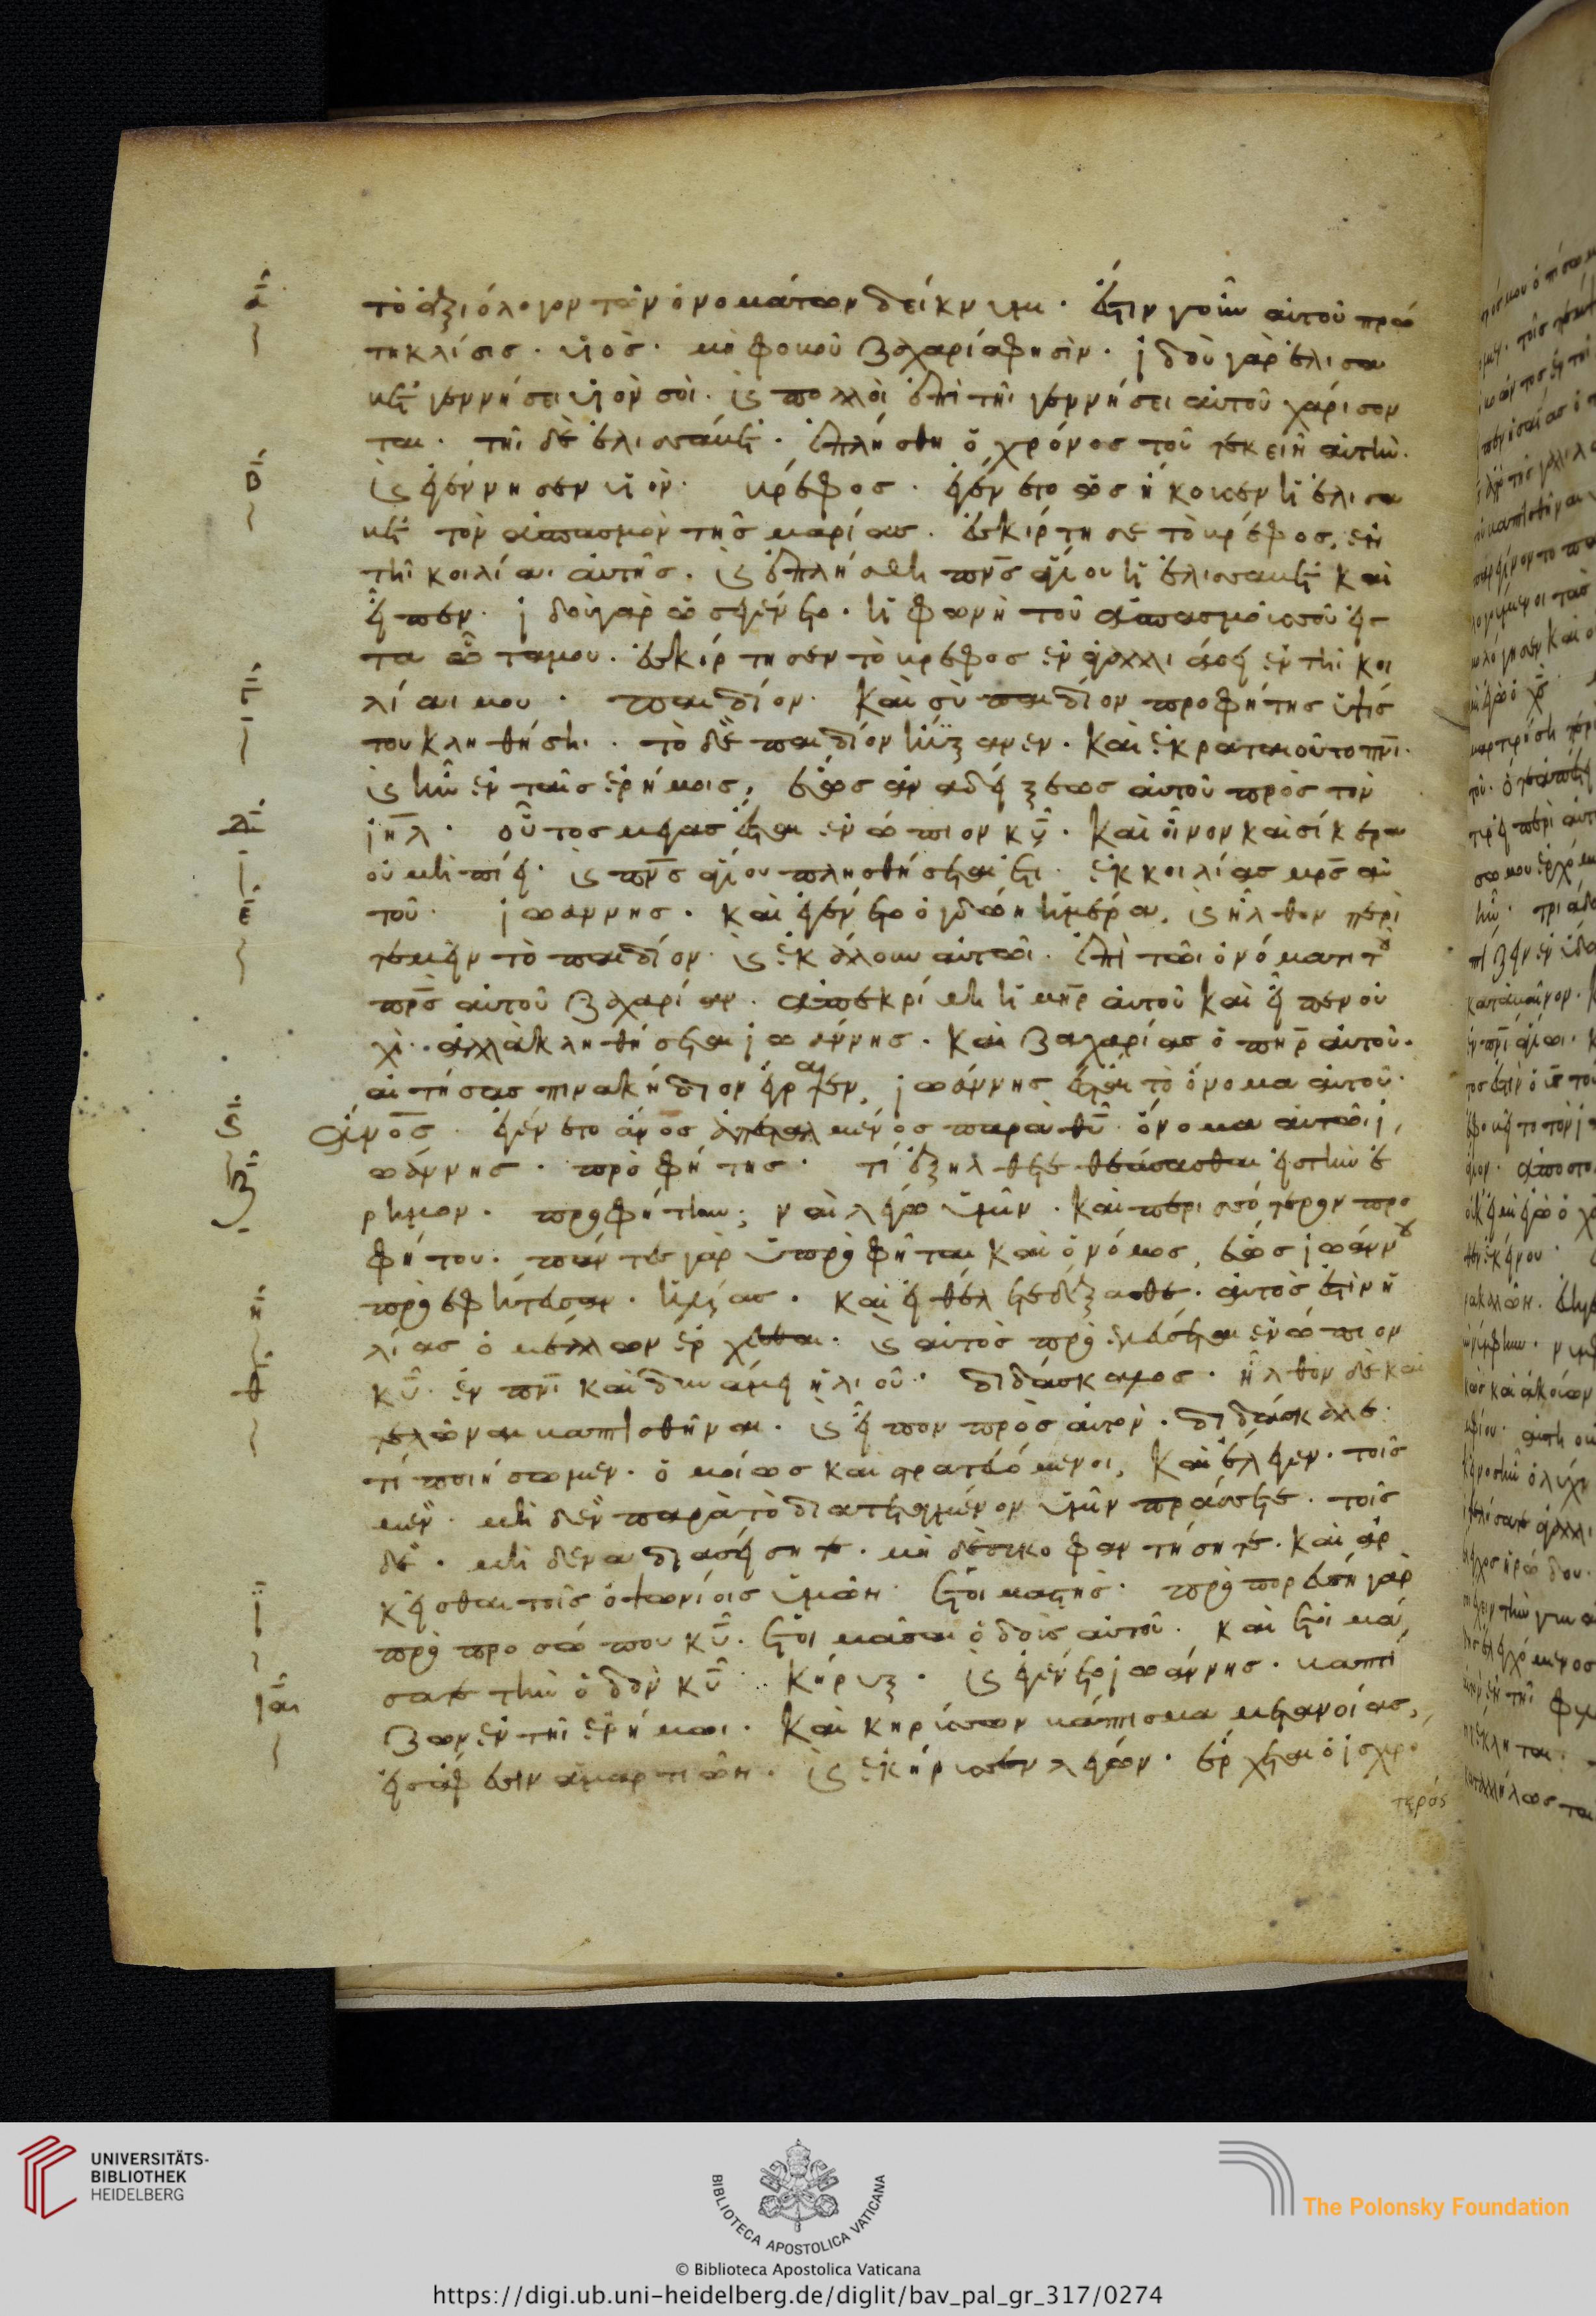 α΄ τὸ ἀξιόλογον τῶν ὀνομάτων δείκνυμι· ἔστιν γοῦν αὐτοῦ πρώ
τη κλίσις· υἱὸς· μὴ φοβοῦ ζαχαρία φησὶν· ἰδοὺ γὰρ ἐλισα
βετ γεννήσει υἱὸν σὸι· καὶ πολλοὶ ἐπὶ τῆι γεννήσει αὐτοῦ χάρισον
ται· τῆι δὲ ἐλισσάβετ· ἐπλήσθη ὁ χρόνος τοῦ τεκεῖν αὐτὴν·
β΄ καὶ ἐγέννησεν υἱὸν· βρέφος· ἐγένετο ὡς ἤκουσεν ἡ ἐλισα
βετ τὸν ἀσπασμὸν τῆς μαρίας· ἐσκίρτησε τὸ βρέφος, ἐν
τῆι κοιλίαι αὐτῆς· καὶ ἐπλήσθη πνς ἁγίου ἡ ἐλισσαβετ καὶ
εἶπεν· ἰδοὺ γὰρ ὡς ἐγένετο· ἡ φωνὴ τοῦ ἀσπασμοῦ σοῦ εἰς
τα ὦτα μου· ἐσκίρτησεν τὸ βρέφος ἐν ἀγαλλιάσει ἐν τῆι κοι
γ΄ λίαι μου· παιδίον· καὶ σὺ παιδίον προφήτης ὑψίσ
του κληθήσηι· τὸ δὲ παιδίον ηὔξανεν· καὶ ἐκραταιοῦτο πνι·
καὶ ἦν ἐν ταῖς ἐρήμοις, ἕως ἀναδείξεως αὐτοῦ πρὸς τὸν
δ΄ ιηλ· οὗτος μέγας ἔσται ἐνώπιον κυ· καὶ οἶνον καὶ σίκερα
οὐ μὴ πίει· καὶ πνς ἁγίου πλησθήσεται ἔτι· ἐκ κοιλίας μρς αὐ
ε΄ τοῦ· ἰωάννης· καὶ ἐγένετο ὀγδώη ἡμέρα, καὶ ἦλθον περι
τεμεῖν τὸ παιδίον· καὶ ἐκάλουν αὐτῶι· ἐπὶ τῶι ὀνόματι τοῦ
πρς αὐτοῦ ζαχαρίαν· ἀπεκρίθη ἡ μηρ αὐτοῦ καὶ εἶπεν οὐ
χὶ· ἀλλὰ κληθήσεται ἰωάννης· καὶ ζαχαρίας ὁ πηρ αὐτοῦ·
αἰτήσας πινακήδιον ἔγραψεν, ἰωάννης ἔσται τὸ ὄνομα αὐτοῦ·
ς΄ ἄνος· ἐγένετο ἄνος ἀπεσταλμένος παρὰ θυ· ὄνομα αὐτῶι ἰ
ζ΄ ωάννης· προφήτης· τί ἐξήλθετε θεάσασθαι εἰς τὴν ἐ
ρημον· προφήτην; ναὶ λέγω ὑμῖν· καὶ περισσότερον προ
φήτου· πάντες γὰρ οἱ προφῆται καὶ ὁ νόμος, ἕως ἰωάννου
η΄ προεφήτευσαν· ἠλίας· καὶ εἰ θέλετε δέξασθε· αὐτὸς ἐστὶν ἠ
λίας ὁ μέλλων ἔρχεσθαι· καὶ αὐτὸς προελεύσεται ἐνώπιον
θ΄ κυ· ἐν πνι καὶ δυνάμει ἠλιοῦ· διδάσκαλος· ἦλθον δὲ καὶ
τελῶναι βαπτισθῆναι· καὶ εἶπον πρὸς αὐτὸν· διδάσκαλε·
τί ποιήσωμεν· ὁμοίως καὶ στρατευόμενοι, καὶ ἔλεγεν· τοῖς
μὲν· μὴ δὲν παρὰ τὸ διατεταγμένον ὑμῖν πράσσετε· τοῖς
δὲ· μὴ δένα διασείσητε· μὴ δὲ συκοφαντήσητε· καὶ ἀρ
ι΄ κεῖσθαι τοῖς ὀψωνίοις ὑμῶν· ἑτοιμαστὴς· προπορεύση γὰρ
πρὸ προσώπου κυ· ἑτοιμάσαι ὁδοὺς αὐτοῦ· καὶ ἑτοιμά
ια΄ σατε τὴν ὁδὸν κυ· κήρυξ· καὶ ἐγένετο ἰωάννης· βαπτί
ζων ἐν τῆι ἐρήμωι· καὶ κηρύσσων βάπτισμα μετανοίας,
εἰς ἄφεσιν ἁμαρτιῶν· καὶ ἐκήρυσσεν λέγων· ἔρχεται ὁ ἰσχυρό
τερός
UNIVERSITÄTS-
BIBLIOTHEK
HEIDELBERG
BIBLIOTECA APOSTOLICA VATICANA
The Polonsky Foundation
© Biblioteca Apostolica Vaticana
https://digi.ub.uni-heidelberg.de/diglit/bav_pal_gr_317/0274